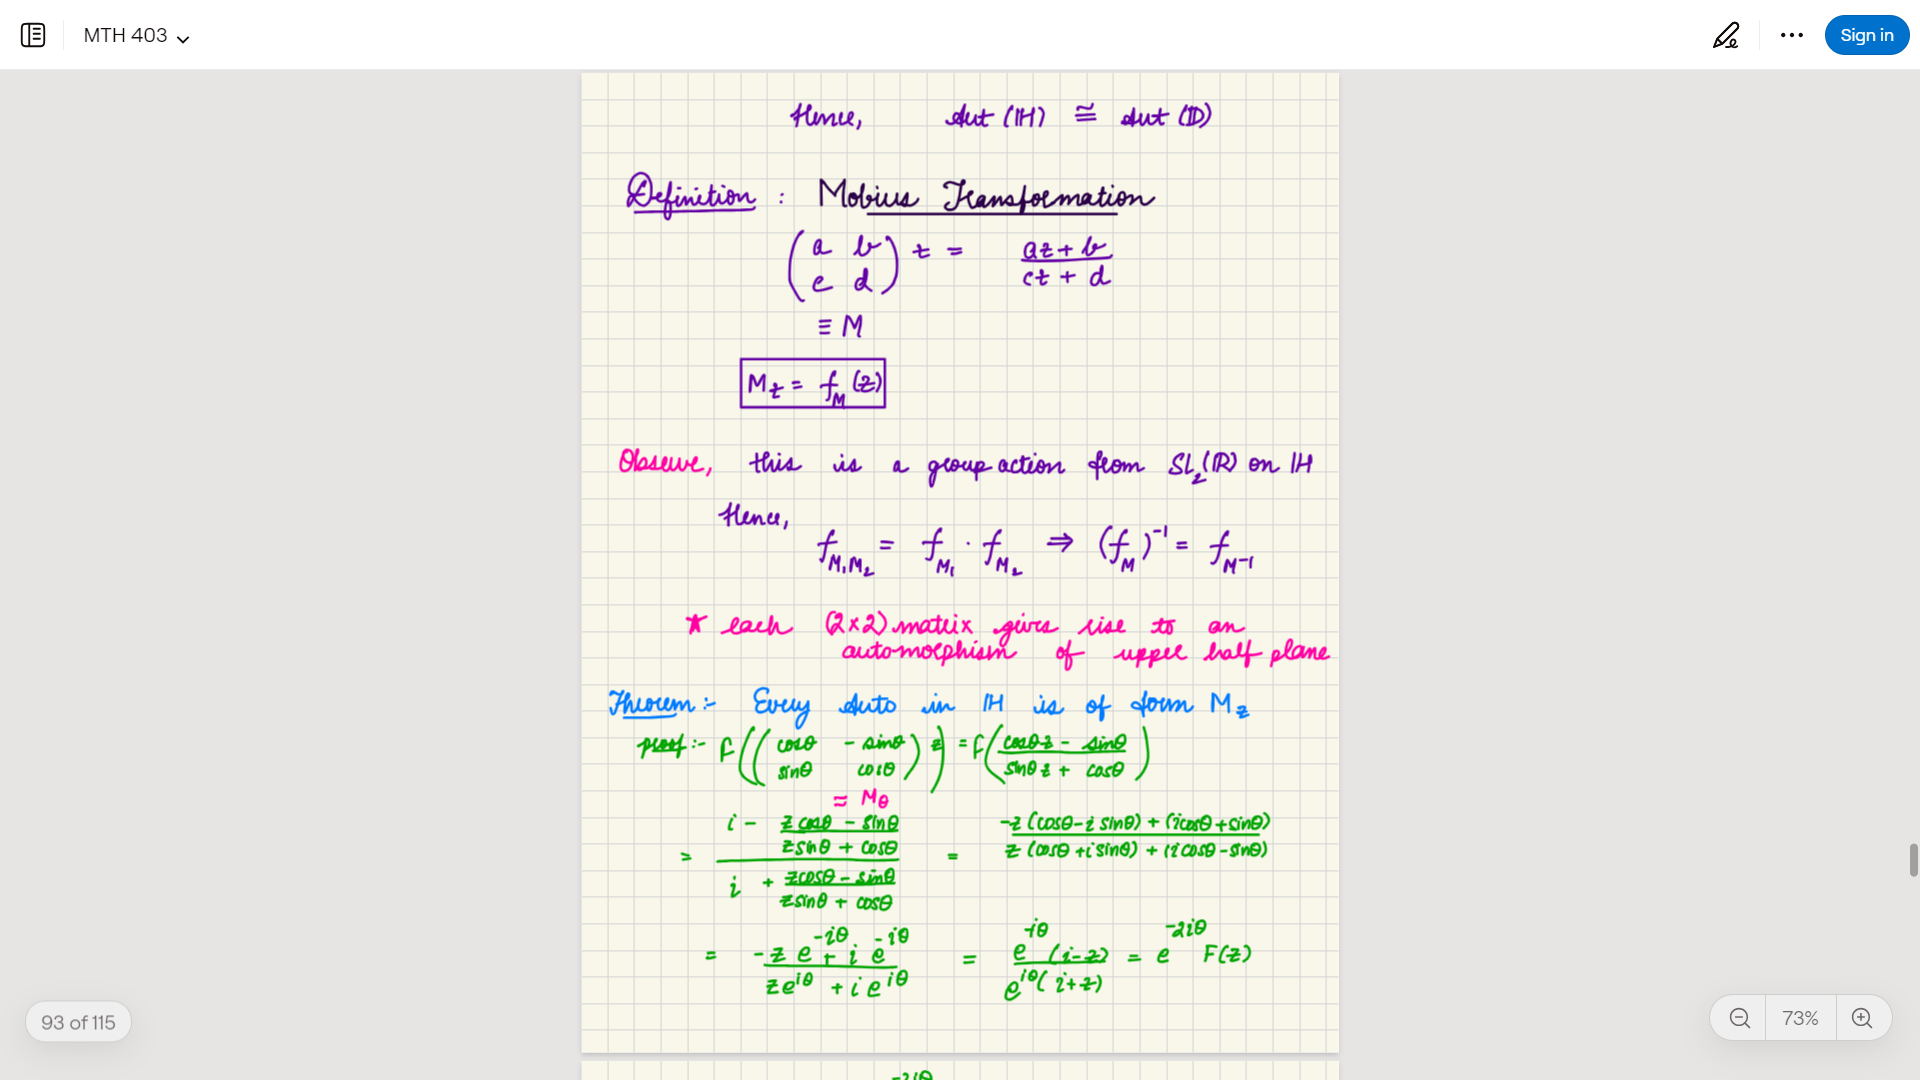 MTH 403
Sign in
Hence, Aut (IH) ≅ Aut (ID)
Definition : Mobius Transformation
( a b ) z = az + b
( c d ) cz + d
≡ M
Mz = f_M (z)
Observe, this is a group action from SL₂(IR) on IH
Hence,
f_{M₁M₂} = f_{M₁} · f_{M₂} ⇒ (f_M)⁻¹ = f_{M⁻¹}
* each (2×2) matrix gives rise to an
automorphism of upper half plane
Theorem :- Every Auto in IH is of form Mz
proof :- F(( cosθ - sinθ ) z) = F( cosθz - sinθ )
sinθ cosθ sinθz + cosθ
≈ M_θ
i - zcosθ - sinθ -z (cosθ - i sinθ) + (icosθ + sinθ)
= zsinθ + cosθ = z (cosθ + isinθ) + (icosθ - sinθ)
i + zcosθ - sinθ
zsinθ + cosθ
= -z e^{-iθ} + i e^{-iθ} = e^{-iθ} (i-z) = e^{-2iθ} F(z)
ze^{iθ} + i e^{iθ} e^{iθ} (i+z)
-2iθ
93 of 115
73%